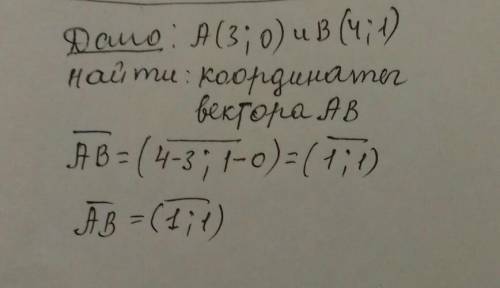 Дано: А(3;0) и В(4;1)
найти: координаты
вектора АВ
AB = (4-3; 1-0) = (1;1)
AB = (1;1)